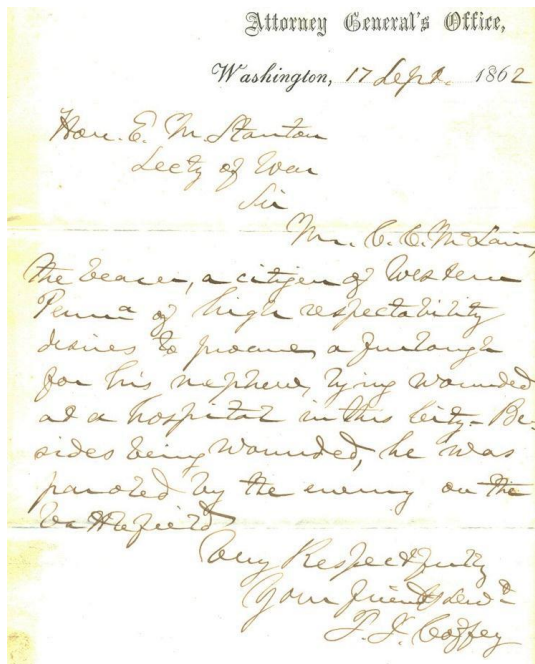 Attorney General's Office,
Washington, 17 Sept. 1862
Hon. E. M. Stanton
Secty of War
Sir
Mr. C. C. McLain,
the bearer, a citizen of Western
Penna of high respectability
desires to procure, a furlough
for his nephew, lying wounded
at a hospital in this City. Be-
sides being wounded, he was
paroled by the enemy on the
battlefield
Very Respectfully
Your friend & servt
T. J. Coffey